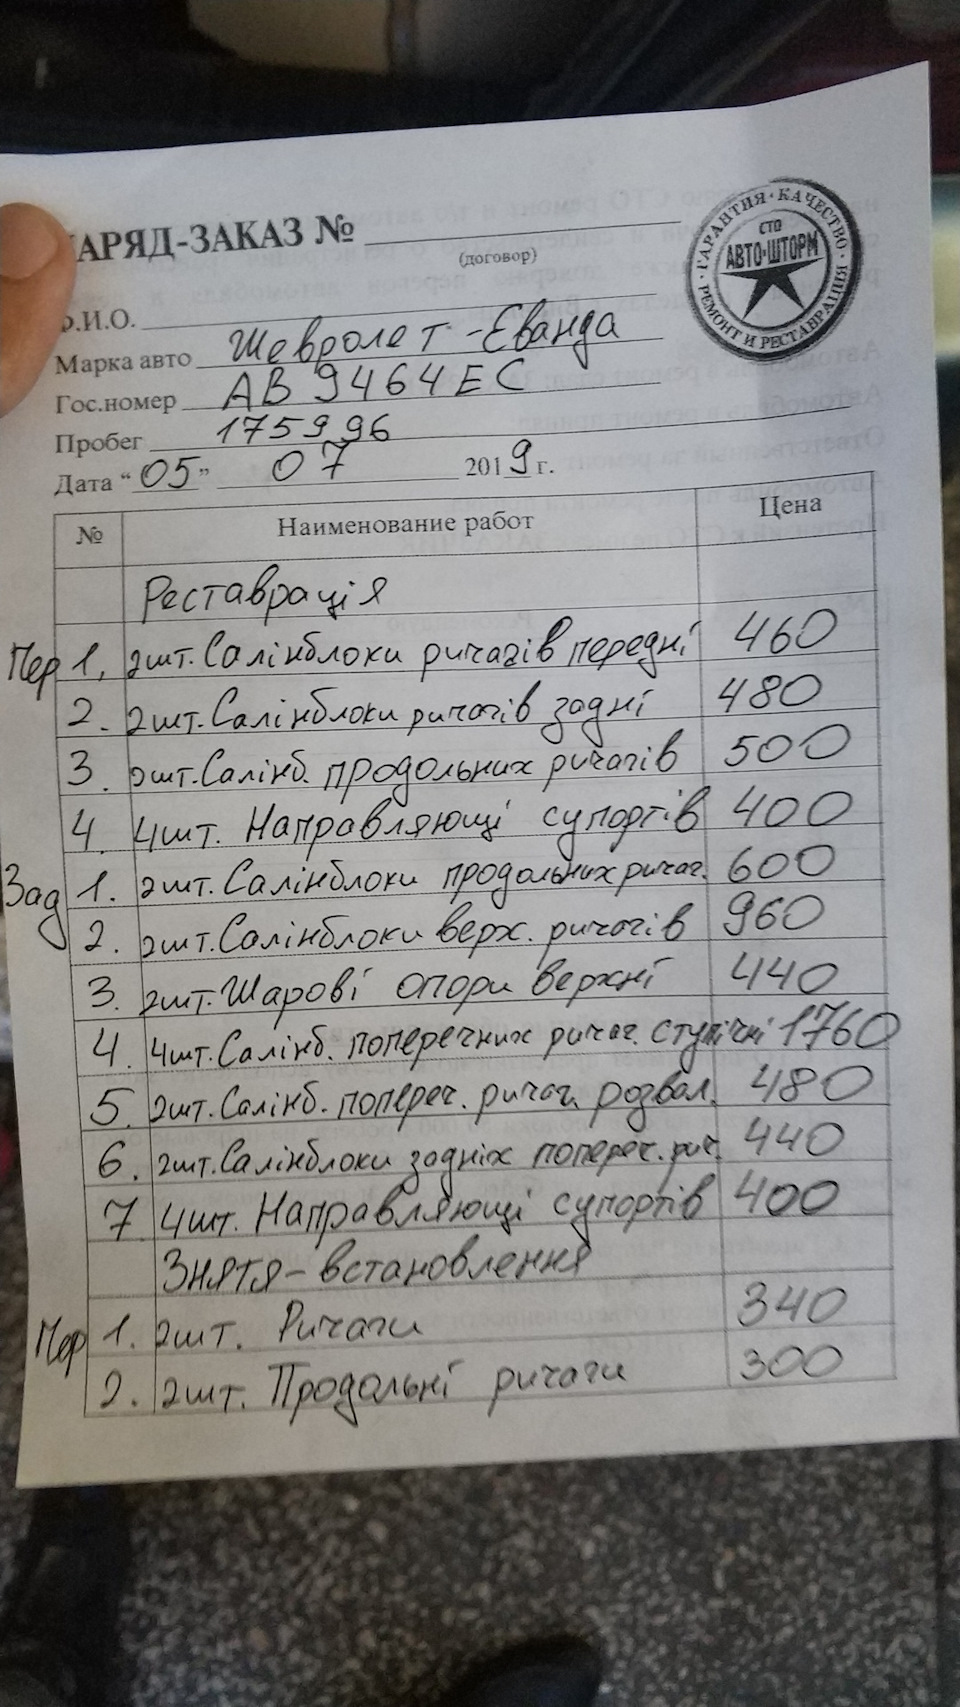 АРЯД-ЗАКАЗ №
(договор)
ГАРАНТИЯ · КАЧЕСТВО · РЕМОНТ И РЕСТАВРАЦИЯ ·
СТО
АВТО-ШТОРМ
Ф.И.О.
Марка авто Шевролет-Еванда
Гос.номер АВ 9464 ЕС
Пробег 175996
Дата “05” 07 2019 г.
№ Наименование работ Цена
Реставрація
Пер 1. 2шт. Салінблоки ричагів передні 460
2. 2шт. Салінблоки ричагів задні 480
3. 2шт. Салінб. продольних ричагів 500
4. 4шт. Направляющі супортів 400
Зад 1. 2шт. Салінблоки продольних ричаг. 600
2. 2шт. Салінблоки верх. ричагів 960
3. 2шт. Шарові опори верхні 440
4. 4шт. Салінб. поперечних ричаг. ступічні 1760
5. 2шт. Салінб. попереч. ричаг. розвал. 480
6. 2шт. Салінблоки задніх попереч. рич. 440
7 4шт. Направляющі супортів 400
Зняття-встановлення
Пер 1. 2шт. Ричаги 340
2. 2шт. Продольні ричаги 300